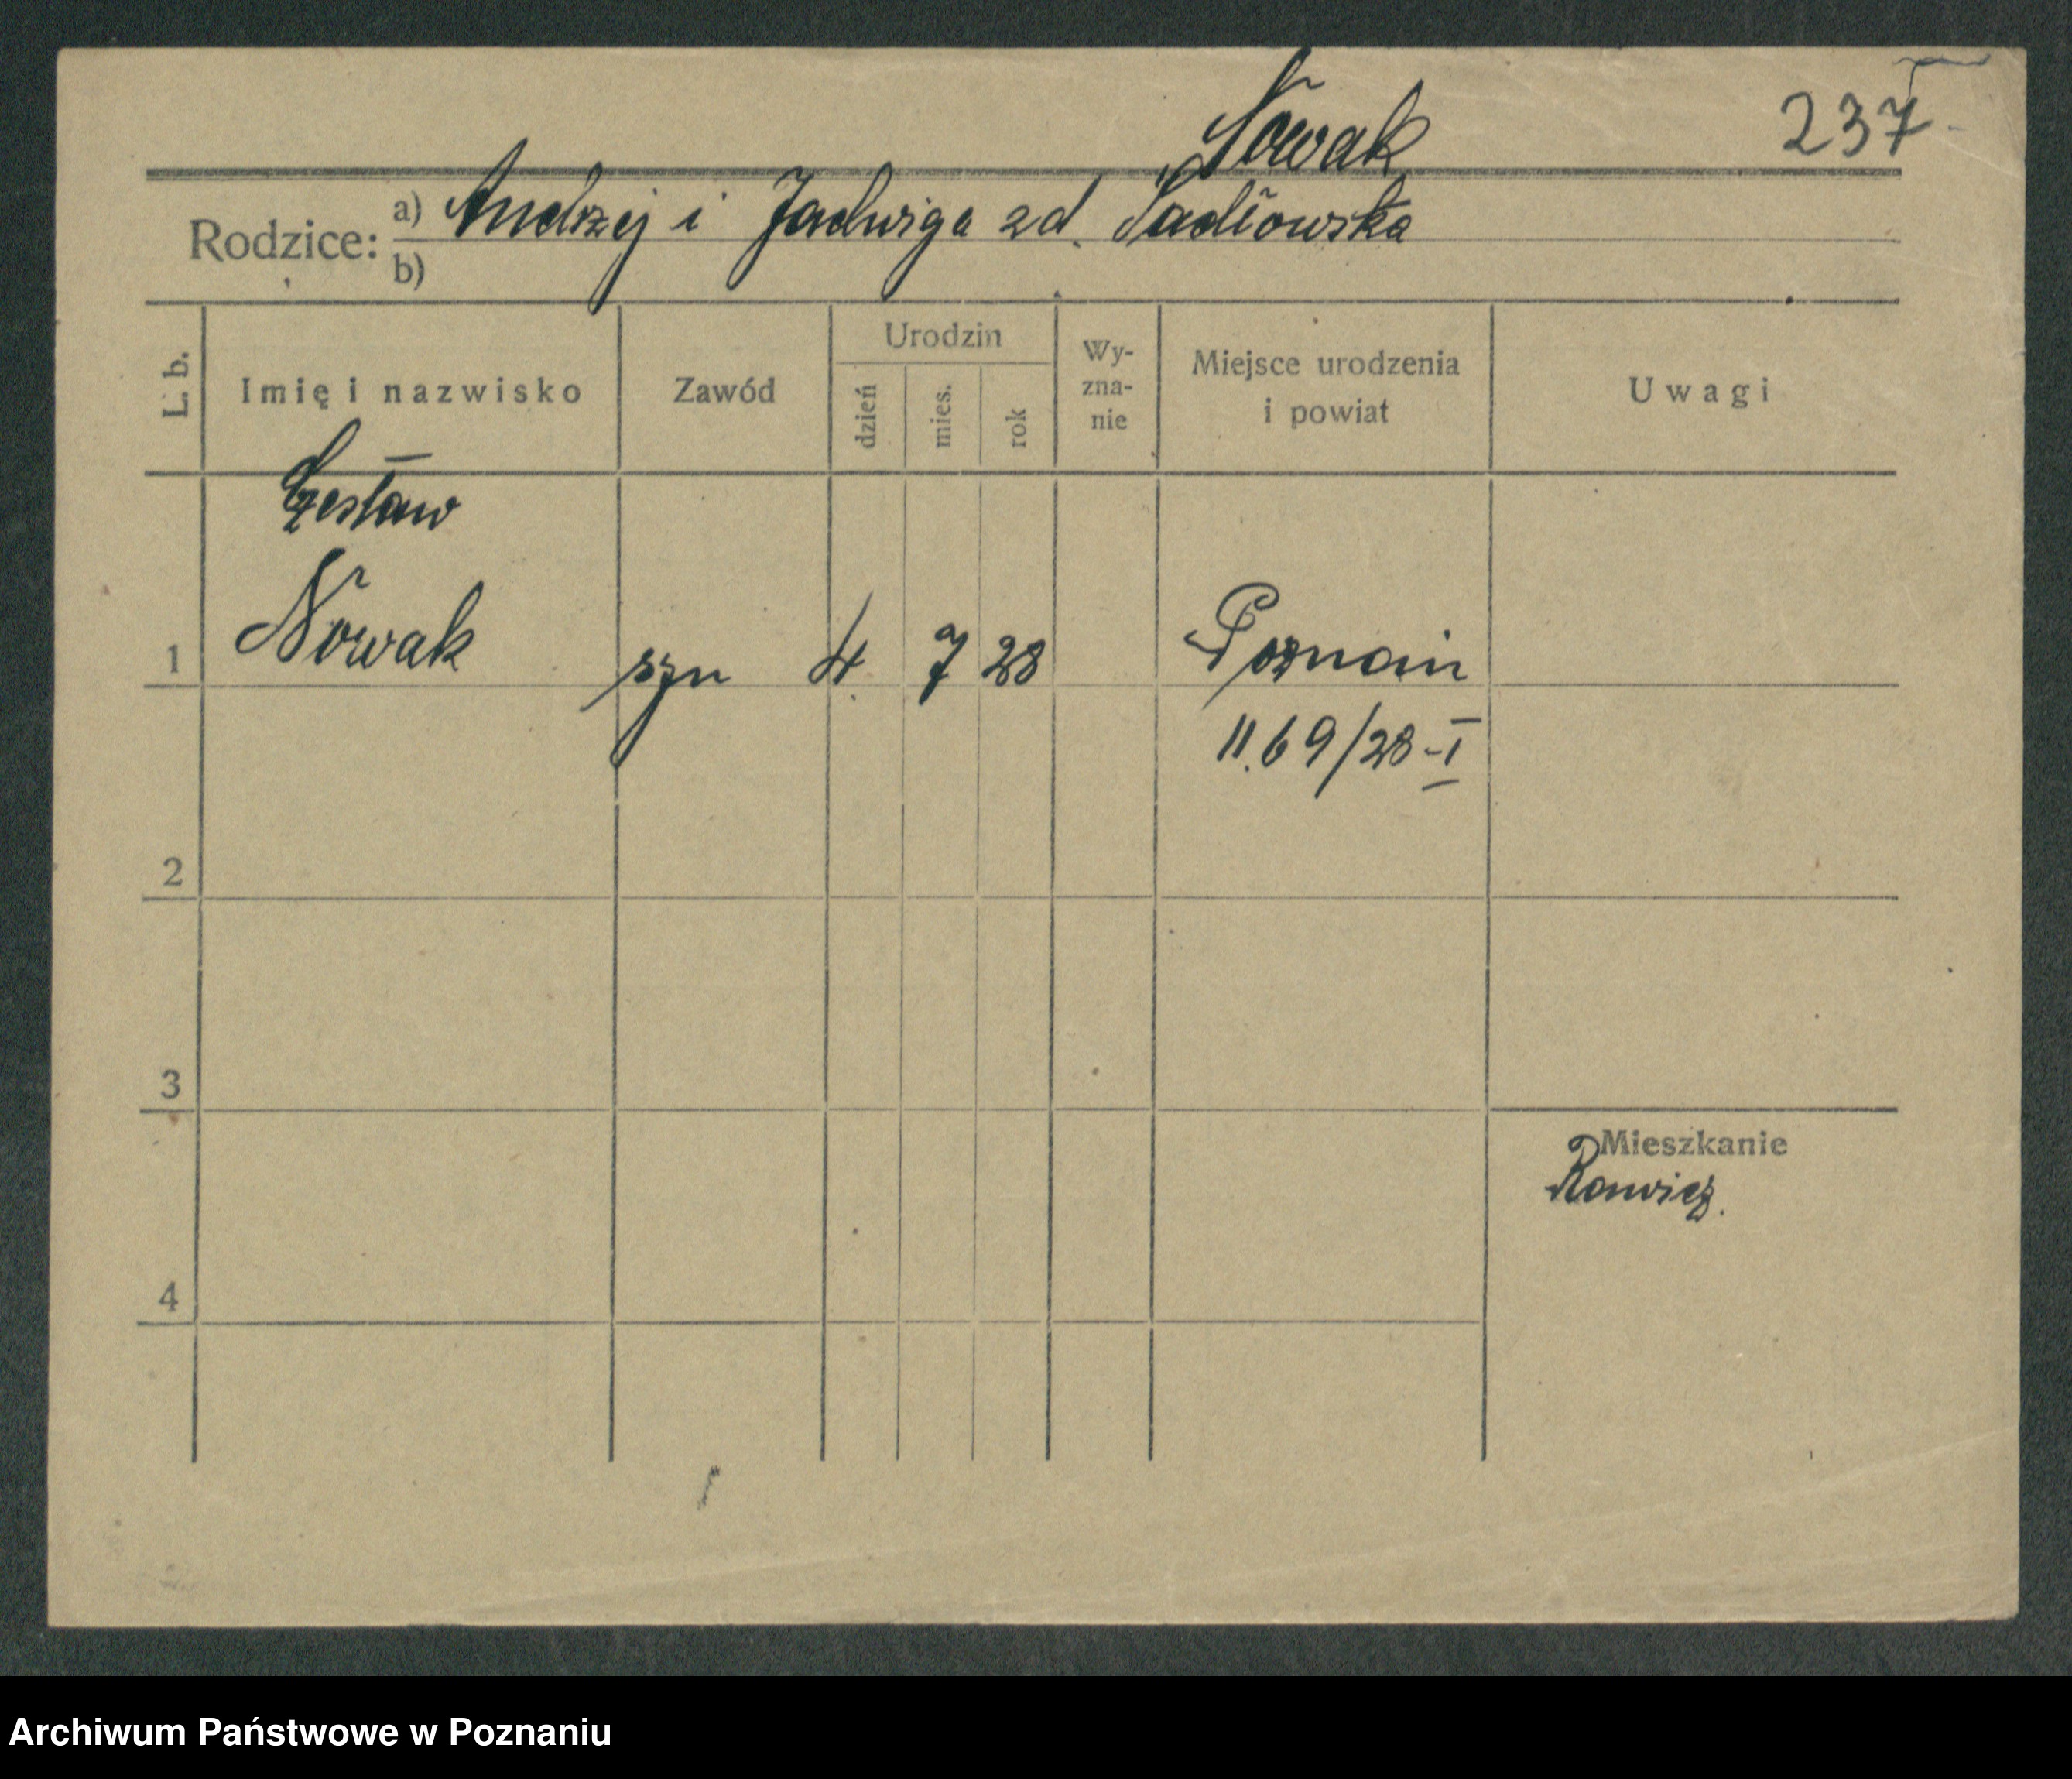 Nowak
237
Rodzice: a) Andrzej i Jadwiga zd. Sadłowska
b)
L. b.
Imię i nazwisko
Zawód
Urodzin
dzień
mies.
rok
Wy-
zna-
nie
Miejsce urodzenia
i powiat
Uwagi
Czesław
1 Nowak syn 4 7 28 Poznań
1169/28-I
2
3
Mieszkanie
Rawicz.
4
Archiwum Państwowe w Poznaniu